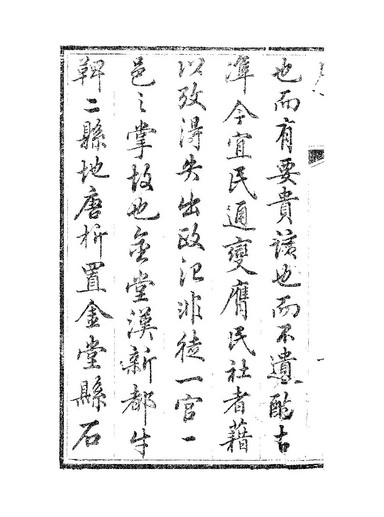 也而有要貴該也而不遺酌古
準今宜民通變膺民社者藉
以攷得失出政治非徒一官一
邑之掌故也金堂漢新都牛
鞞二縣地唐析置金堂縣石